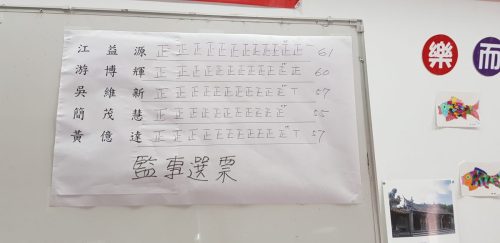 江益源 正正正正正正正正正正正正一 61
游博輝 正正正正正正正正正正正正 60
吳維新 正正正正正正正正正正正丅 57
簡茂慧 正正正正正正正正正正正 55
黃億達 正正正正正正正正正正正丅 57
監事選票
樂而